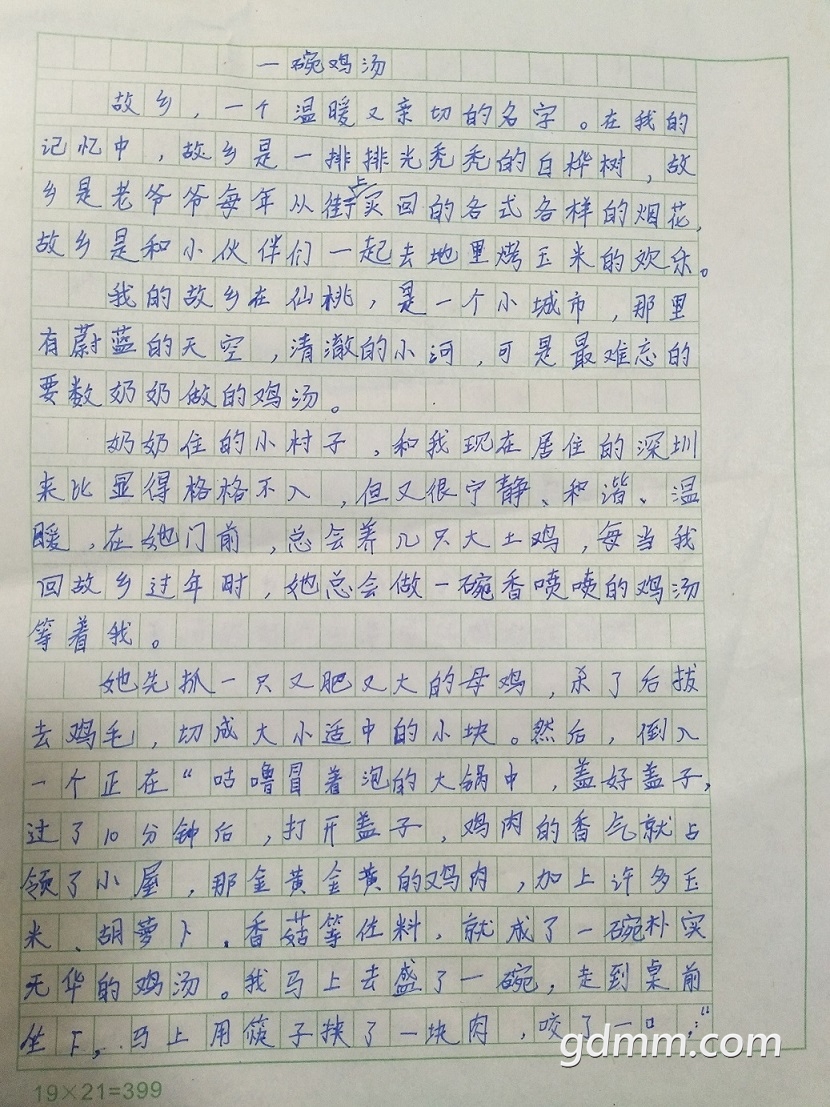 一碗鸡汤
故乡，一个温暖又亲切的名字。在我的
记忆中，故乡是一排排光秃秃的白桦树，故
乡是老爷爷每年从街上买回的各式各样的烟花，
故乡是和小伙伴们一起去地里烤玉米的欢乐。
我的故乡在仙桃，是一个小城市，那里
有蔚蓝的天空，清澈的小河，可是最难忘的
要数奶奶做的鸡汤。
奶奶住的小村子，和我现在居住的深圳
来比显得格格不入，但又很宁静、和谐、温
暖，在她门前，总会养几只大土鸡，每当我
回故乡过年时，她总会做一碗香喷喷的鸡汤
等着我。
她先抓一只又肥又大的母鸡，杀了后拔
去鸡毛，切成大小适中的小块。然后，倒入
一个正在“咕噜冒着泡的大锅中，盖好盖子，
过了10分钟后，打开盖子，鸡肉的香气就占
领了小屋，那金黄金黄的鸡肉，加上许多玉
米、胡萝卜、香菇等佐料，就成了一碗朴实
无华的鸡汤。我马上去盛了一碗，走到桌前
坐下，马上用筷子挟了一块肉，咬了一口，：“
gdmm.com
19×21=399